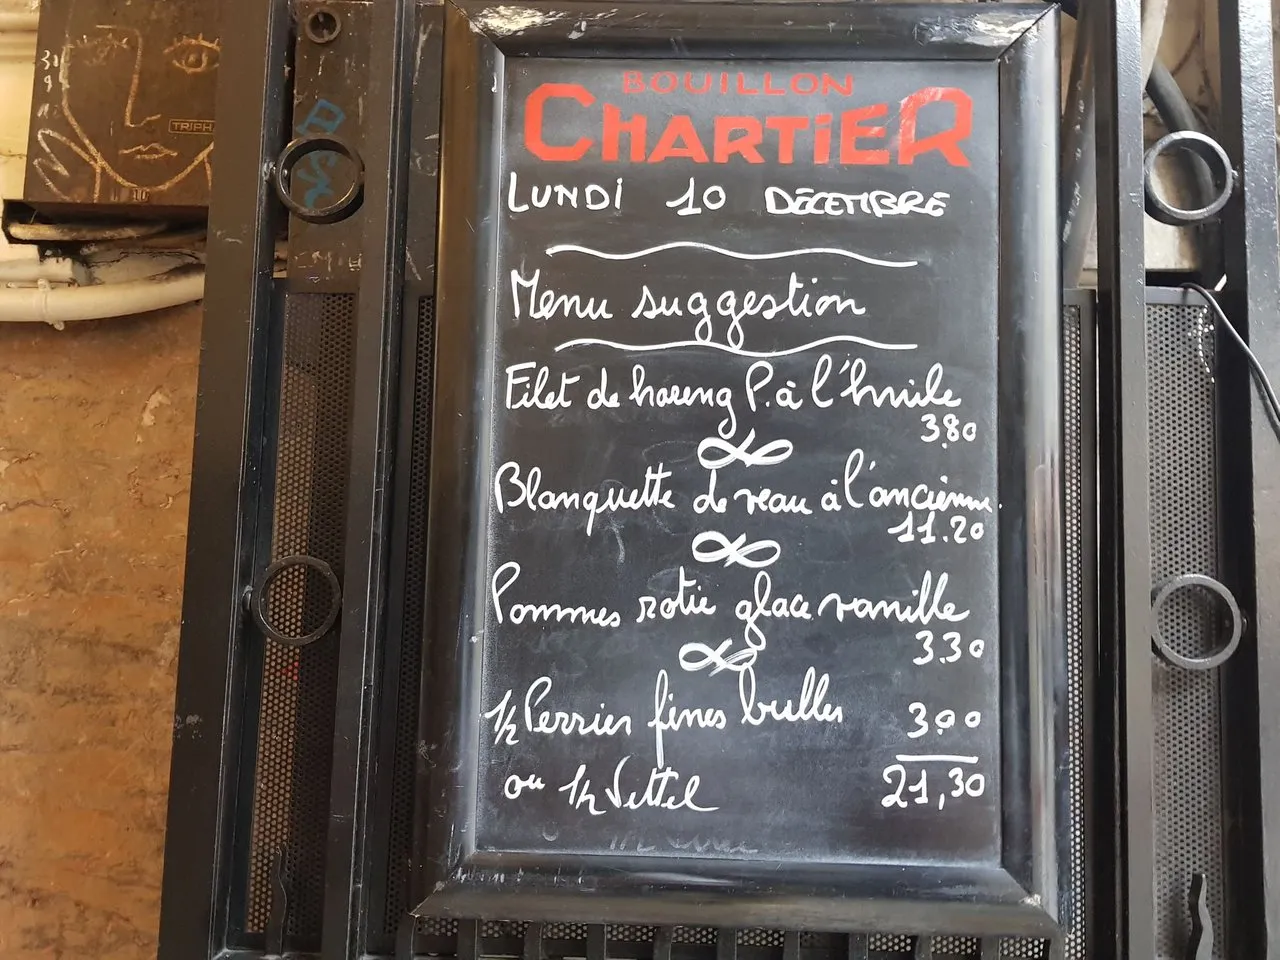 BOUILLON
CHARTiER
LUNDI 10 DÉCEMBRE
Menu suggestion
Filet de hareng P. à l'huile
3.80
Blanquette de veau à l'ancienne.
11.20
Pommes rotie glace vanille
3.30
1/2 Perrier fines bulles 3.00
ou 1/2 Vittel 21,30
TRIPH